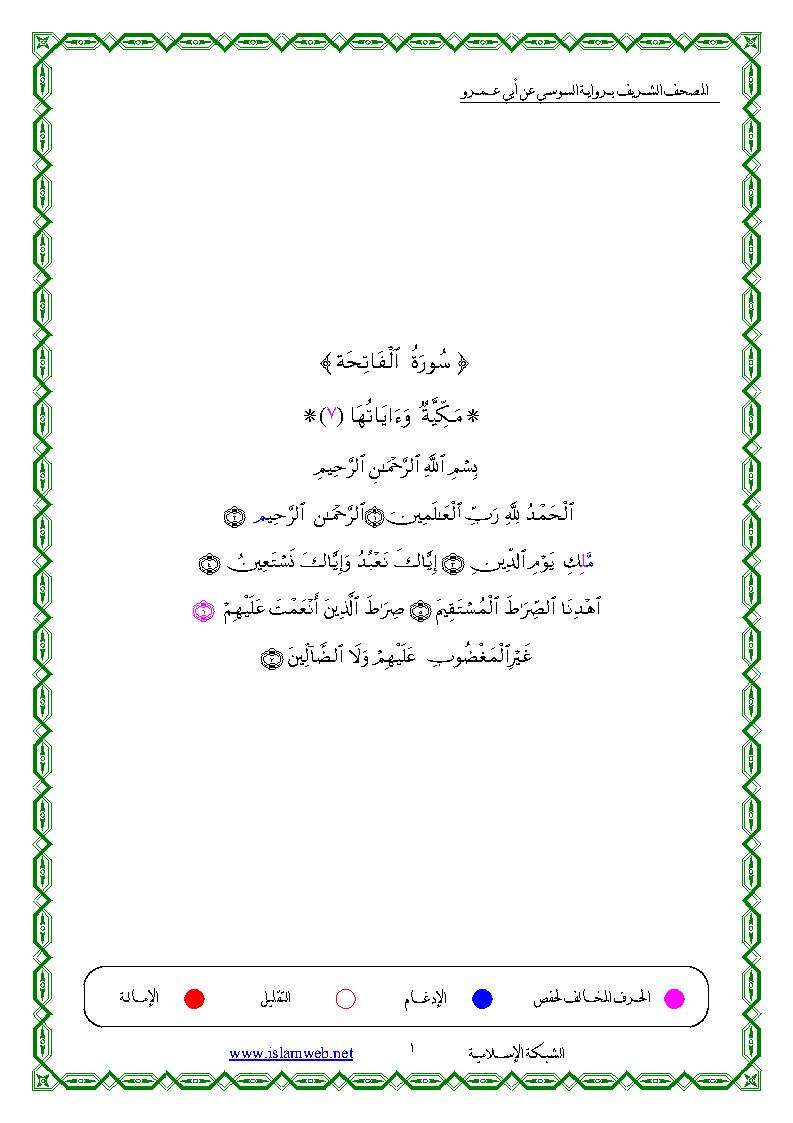 المصحف الشريف برواية السوسي عن أبي عمرو
﴿ سُورَةُ ٱلْفَاتِحَة ﴾
* مَكِّيَّةٌ وَءَايَاتُهَا (٧) *
بِسْمِ ٱللَّهِ ٱلرَّحْمَٰنِ ٱلرَّحِيمِ
ٱلْحَمْدُ لِلَّهِ رَبِّ ٱلْعَٰلَمِينَ ١ ٱلرَّحْمَٰنِ ٱلرَّحِيم ٢
مَّلِكِ يَوْمِ ٱلدِّينِ ٣ إِيَّاكَ نَعْبُدُ وَإِيَّاكَ نَسْتَعِينُ ٤
ٱهْدِنَا ٱلصِّرَٰطَ ٱلْمُسْتَقِيمَ ٥ صِرَٰطَ ٱلَّذِينَ أَنْعَمْتَ عَلَيْهِمْ ٦
غَيْرِ ٱلْمَغْضُوبِ عَلَيْهِمْ وَلَا ٱلضَّآلِّينَ ٧
الحرف المخالف لحفص الإدغام التقليل الإمالة
الشبكة الإسلامية ١ www.islamweb.net